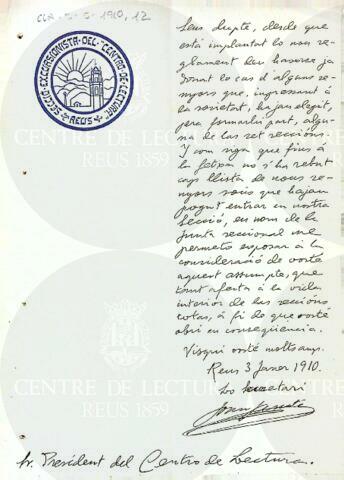 CLR-5-5-1910, 12
SECCIÓ EXCURSIONISTA DEL CENTRE DE LECTURA
REUS
Sens dupte, desde que
está implantat lo nou re-
glament deu haverse ja
donat lo cas d'alguns se-
nyors que, ingressant á
la societat, hajan elegit,
pera formarhi part, algu-
na de las set seccións.
Y com siga que fins á
la fetxa no s'ha rebut
cap llista de nous se-
nyors socis que hajan
pogut entrar en nostra
Secció, en nom de la
Junta seccional me
permeto exposar á la
consideració de vosté
aquest assumpte, que
tant afecta á la vida
interior de las seccións
totas, á fi de que vosté
obri en conseqüencia.
Visqui vosté molts anys.
Reus 3 Janer 1910.
Lo Secretari
Sr. President del Centro de Lectura.
CENTRE DE LECTURA
REUS 1859
CENTRE DE LECTURA
REUS 1859